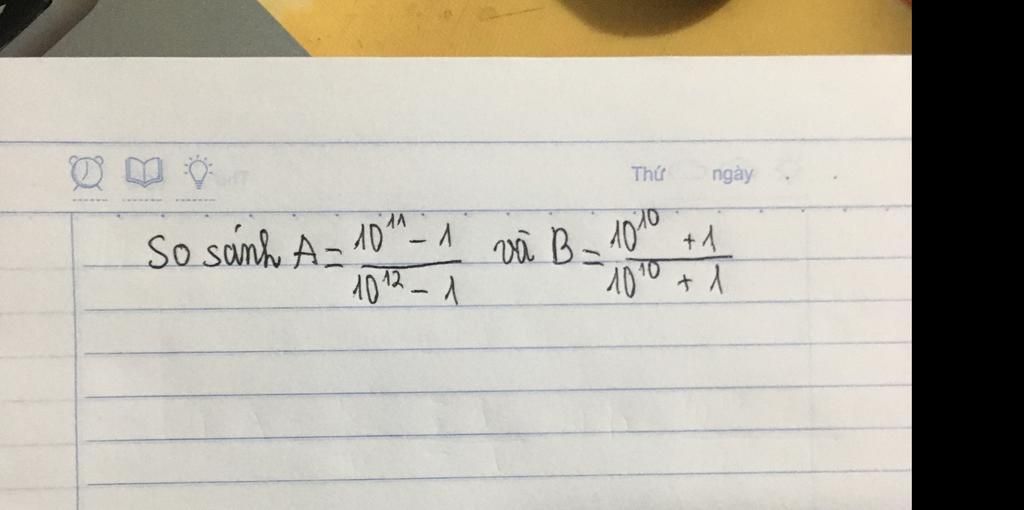 Thứ ngày
So sánh A = \frac{10^{11} - 1}{10^{12} - 1} và B = \frac{10^{10} + 1}{10^{10} + 1}